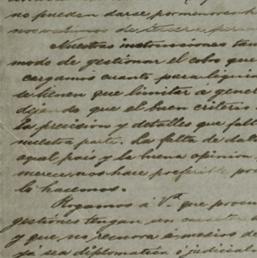 no pueden darse, pormenores
nos
Nuestras instrucciones tam
modo de gestionar el cobro que
cargamos cuanto para liquid
se tienen que limitar a gene
dejando que el buen criterio
la precision y detalles que falt
nuestra parte. La falta de dat
aquel pais y la buena opinion
merece nos hace preferible
lo hacemos.
Rogamos á Vd. que procu
gestiones tengan en cuenta
y que no recurra á medios de
ya sea diplomática ó judicial